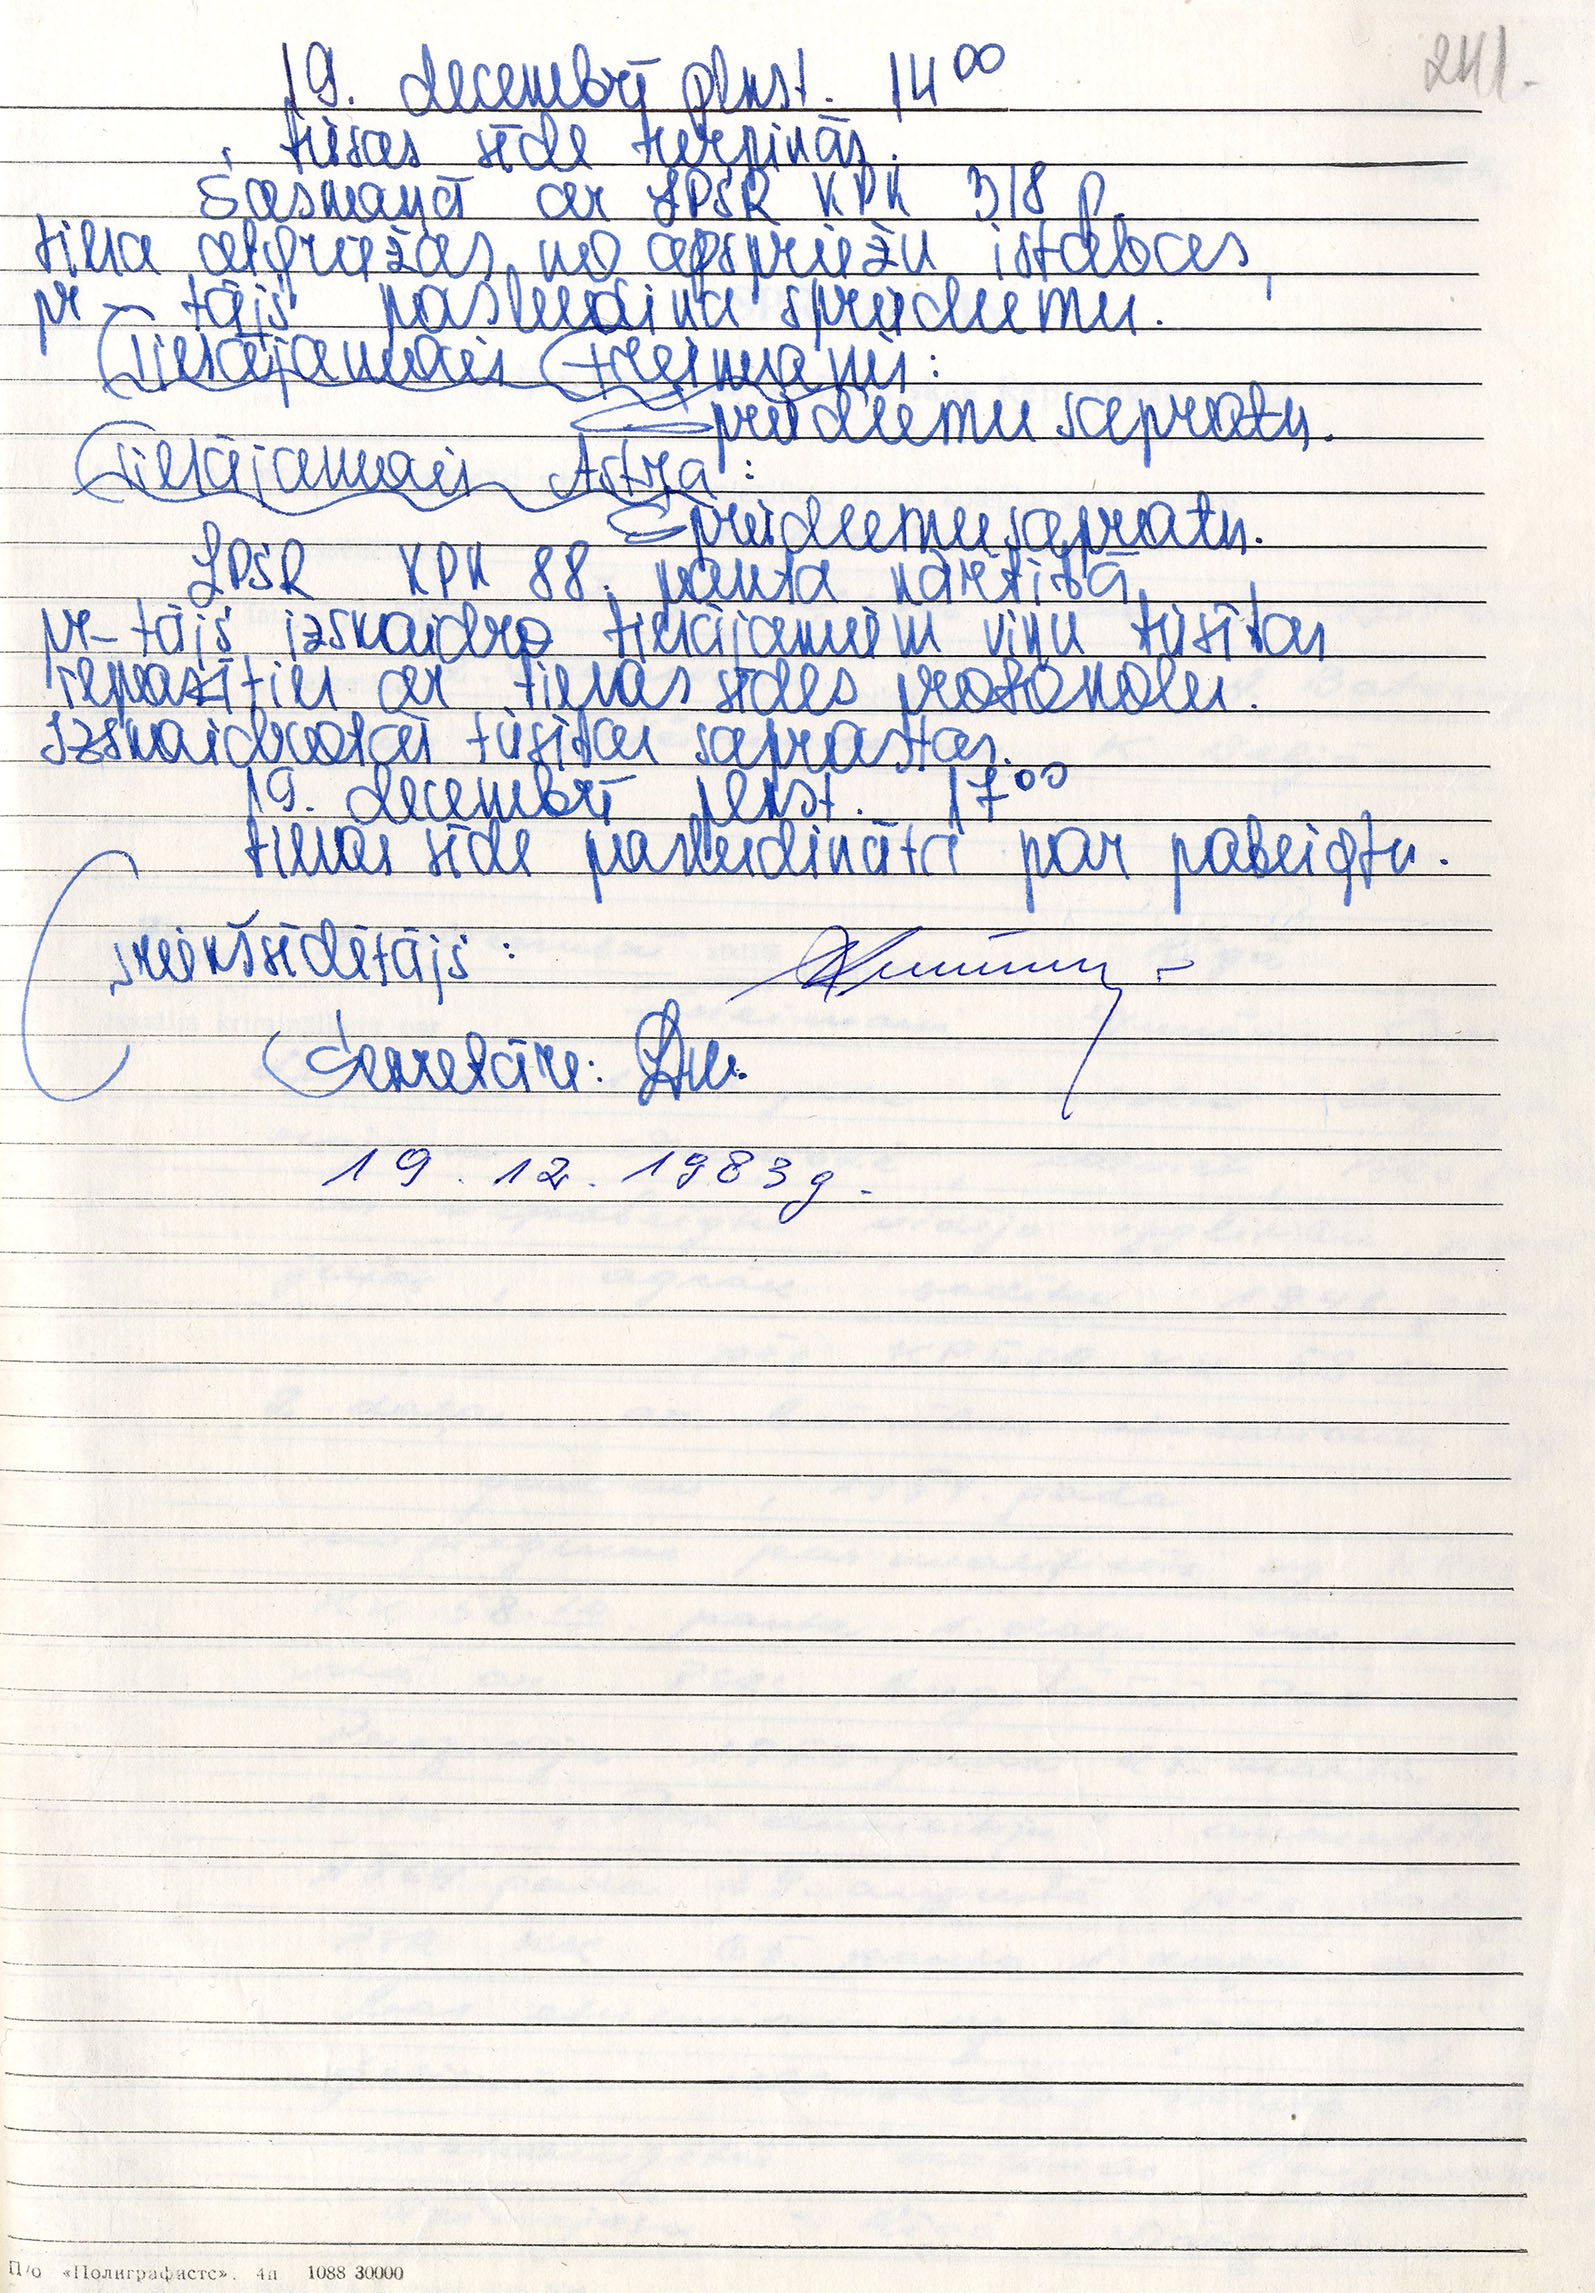 241.
19. decembrī plkst. 14 00
tiesas sēde turpinās.
Saskaņā ar LPSR KPK 318 p.
tiesa atgriežas no apspriežu istabas,
pr-tājs pasludina spriedumu.
Tiesājamais Freimanis:
spriedumu sapratu.
Tiesājamais Astra:
Spriedumu sapratu.
LPSR KPK 88. panta kārtībā
pr-tājs izskaidro tiesājamiem viņu tiesības
iepazīties ar tiesas sēdes protokolu.
Izskaidrotās tiesības saprastas.
19. decembrī plkst. 17 00
tiesas sēde pasludināta par pabeigtu.
Priekšsēdētājs:
Sekretāre:
19. 12. 1983 g.
П/о «Полиграфистс». 4л 1088 30000